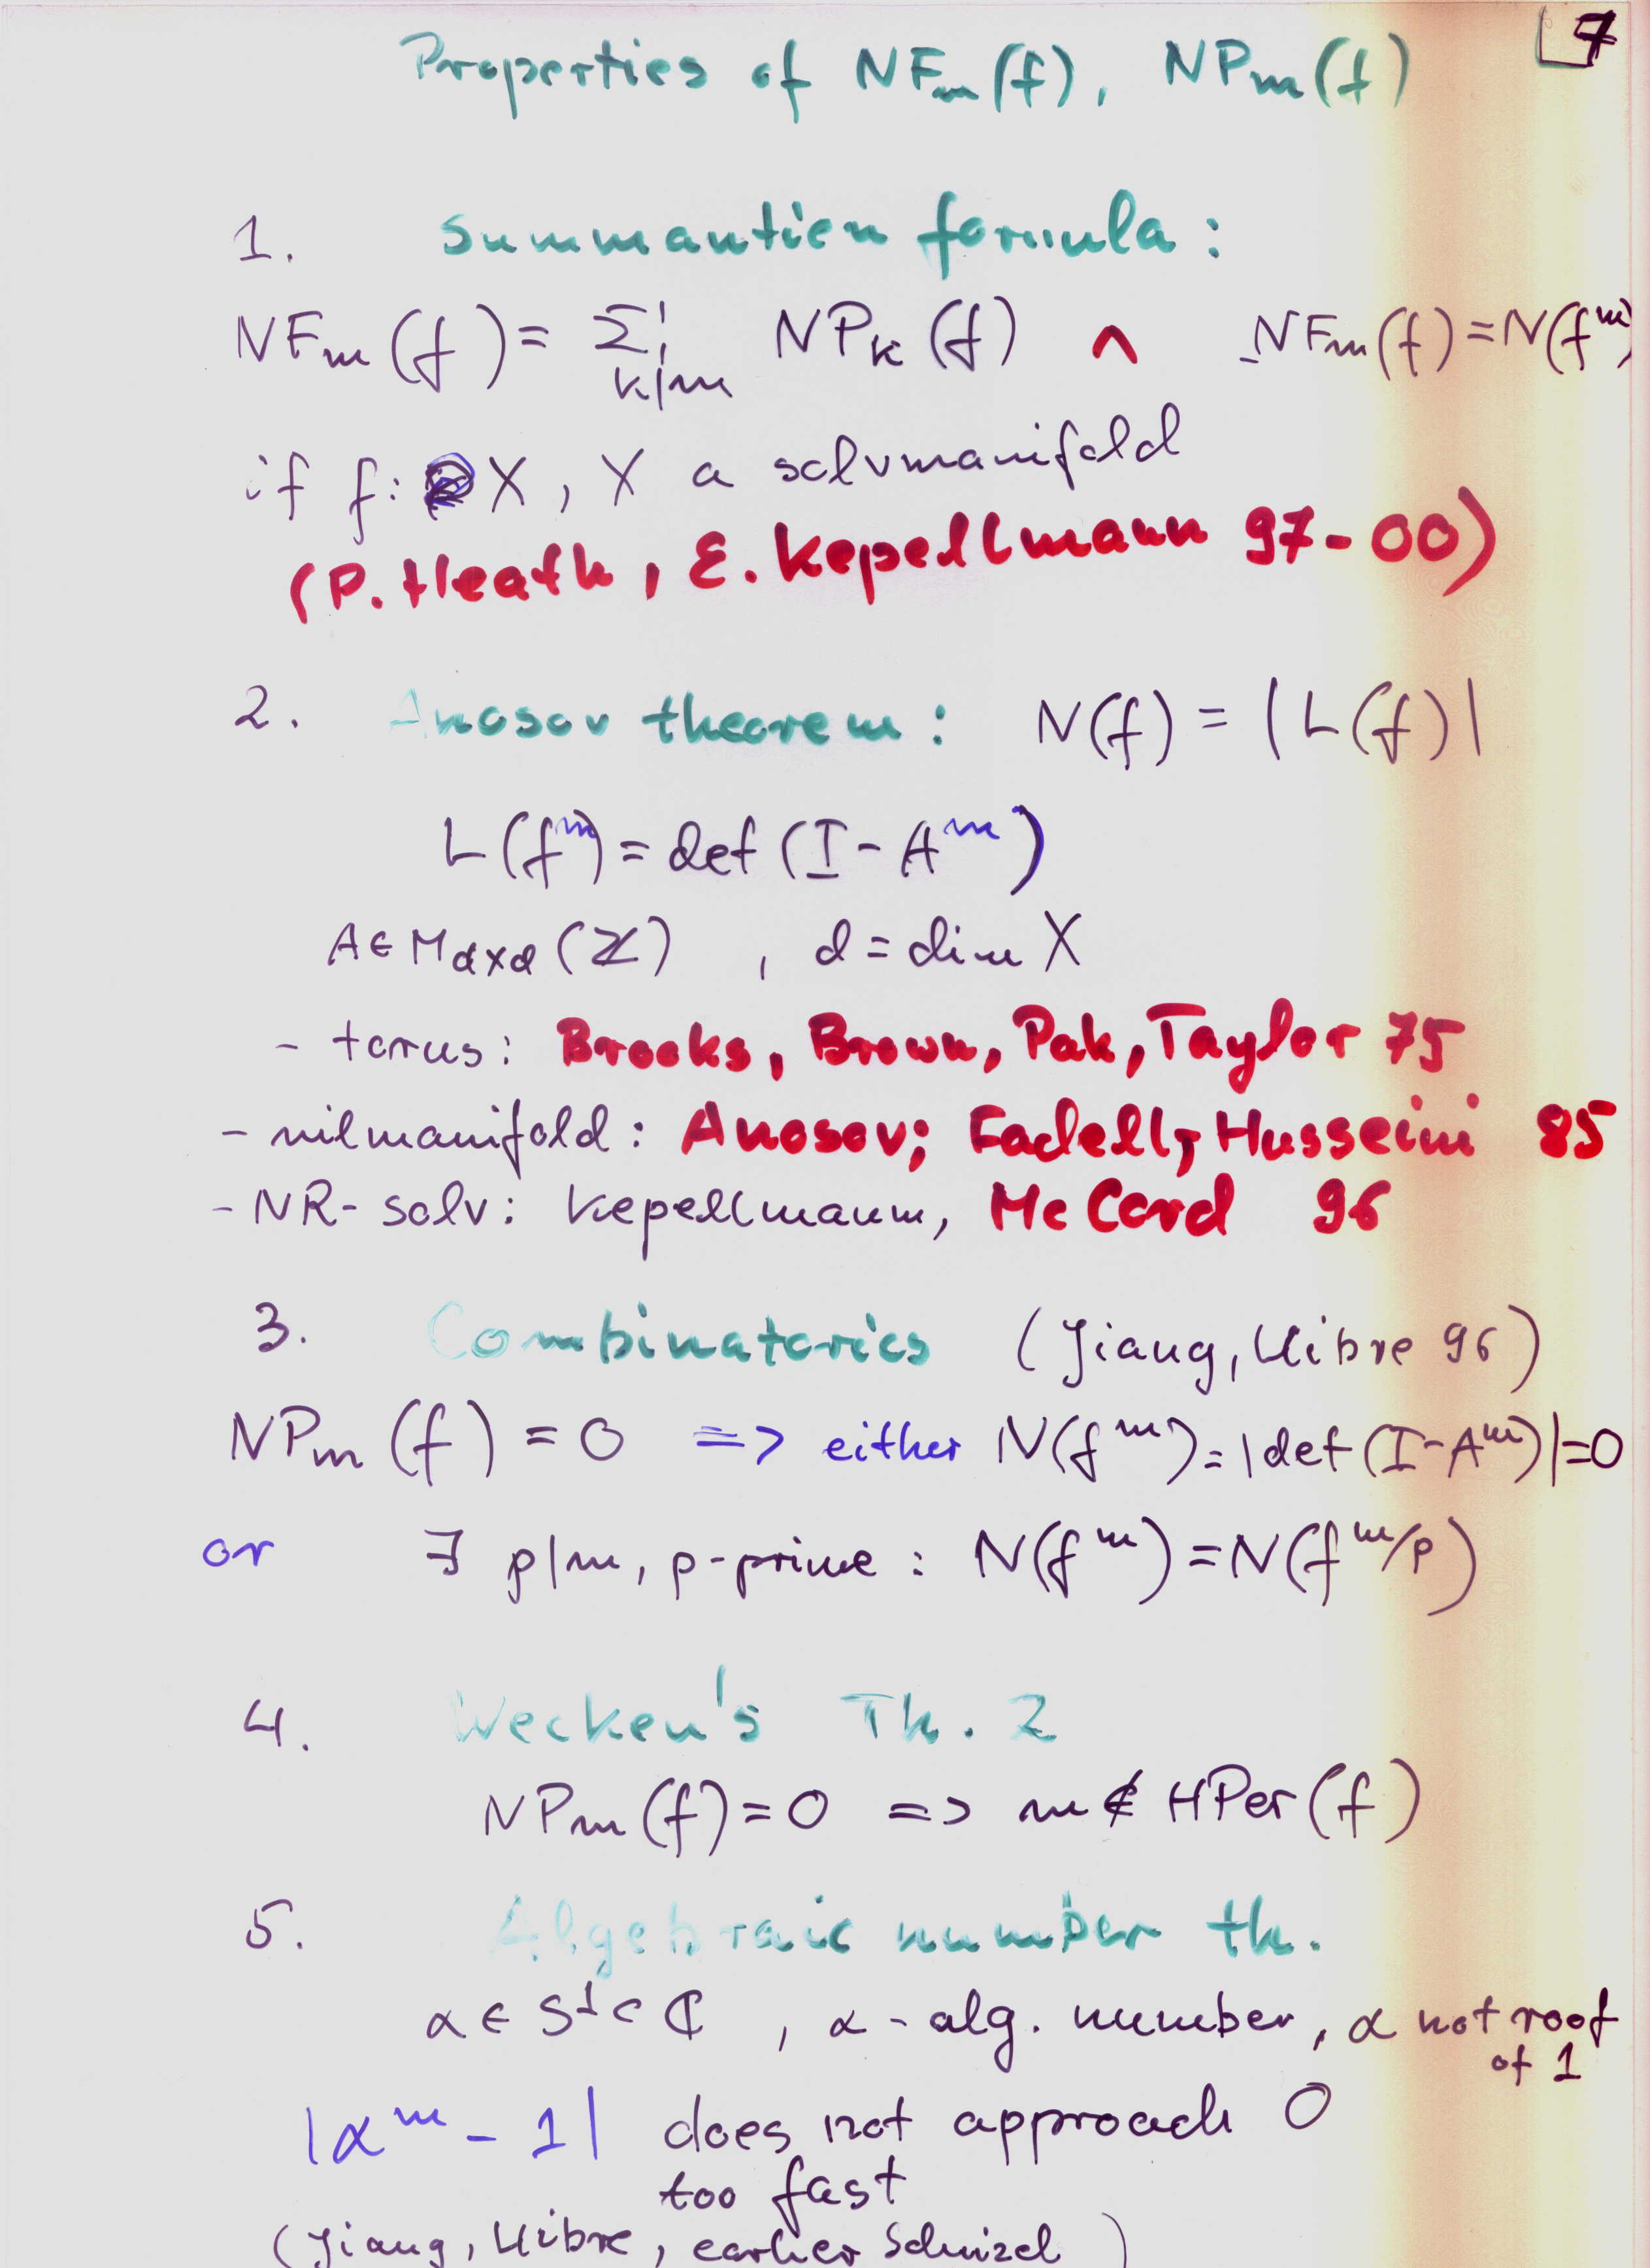 7
Properties of NFm(f), NPm(f)
1. Summantion formula:
NFm(f) = Σ k|m NPk(f) ∧ NFm(f) = N(f^m)
if f: X, X a solvmanifold
(P. Heath, E. Kepellmann 97-00)
2. Anosov theorem: N(f) = |L(f)|
L(f^m) = det(I - A^m)
A ∈ M d×d (Z) , d = dim X
- torus: Brooks, Brown, Pak, Taylor 75
- nilmanifold: Anosov; Fadell, Husseini 85
- NR-solv: Kepellmann, Mc Cord 96
3. Combinatorics (Jiang, Llibre 96)
NPm(f) = 0 => either N(f^m) = |det(I - A^m)| = 0
or ∃ p|m, p-prime: N(f^m) = N(f^m/p)
4. Wecken's Th. 2
NPm(f) = 0 => m ∉ HPer(f)
5. Algebraic number th.
α ∈ S^1 ⊂ ℂ , α - alg. number, α not root
of 1
|α^m - 1| does not approach 0
too fast
(Jiang, Llibre, earlier Schinzel)